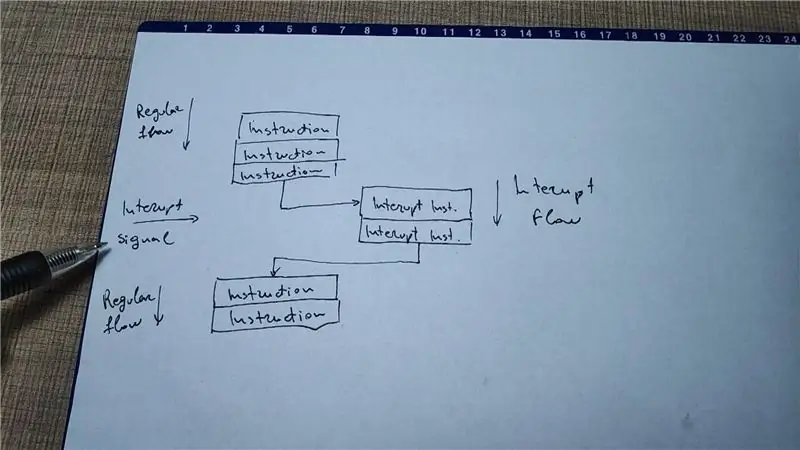 1 2 3 4 5 6 7 8 9 10 11 12 13 14 15 16 17 18 19 20 21 22 23 24
Regular
flow
Instruction
Instruction
Instruction
Interupt
signal
Interupt Inst.
Interupt Inst.
Interupt
Flow
Regular
flow
Instruction
Instruction